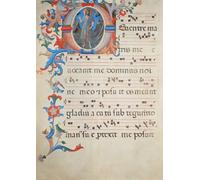 De uentre ma
tris me e
uocauit me dominus noi
ne meo et posuit os meum ut
gladium acutum sub tegumento
manus sue protexit me posuit